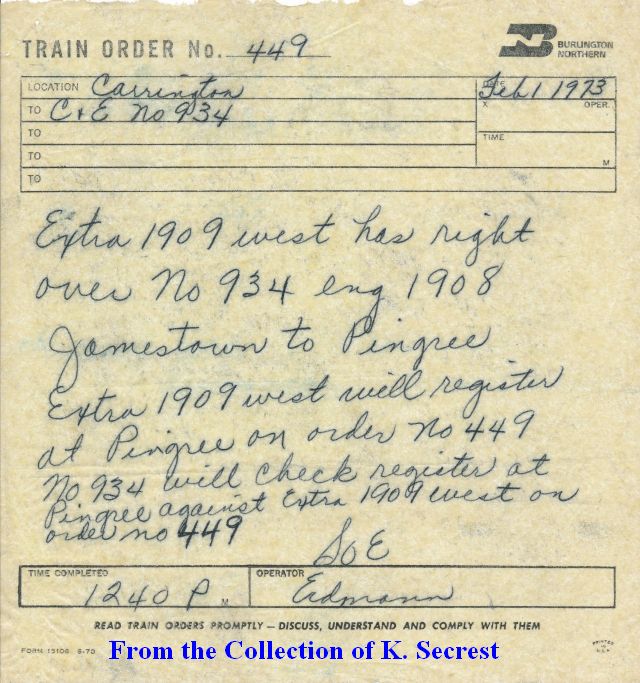 TRAIN ORDER No. 449
BURLINGTON
NORTHERN
LOCATION Carrington
DATE Feb 1 1973
TO C+E No 934
X OPER.
TO
TIME M
TO
TO
Extra 1909 west has right
over No 934 eng 1908
Jamestown to Pingree
Extra 1909 west will register
at Pingree on order No 449
No 934 will check register at
Pingree against Extra 1909 west on
order no 449
SoE
TIME COMPLETED 1240 P M
OPERATOR Erdmann
READ TRAIN ORDERS PROMPTLY — DISCUSS, UNDERSTAND AND COMPLY WITH THEM
FORM 15106 5-70
PRINTED
IN
U.S.A.
From the Collection of K. Secrest